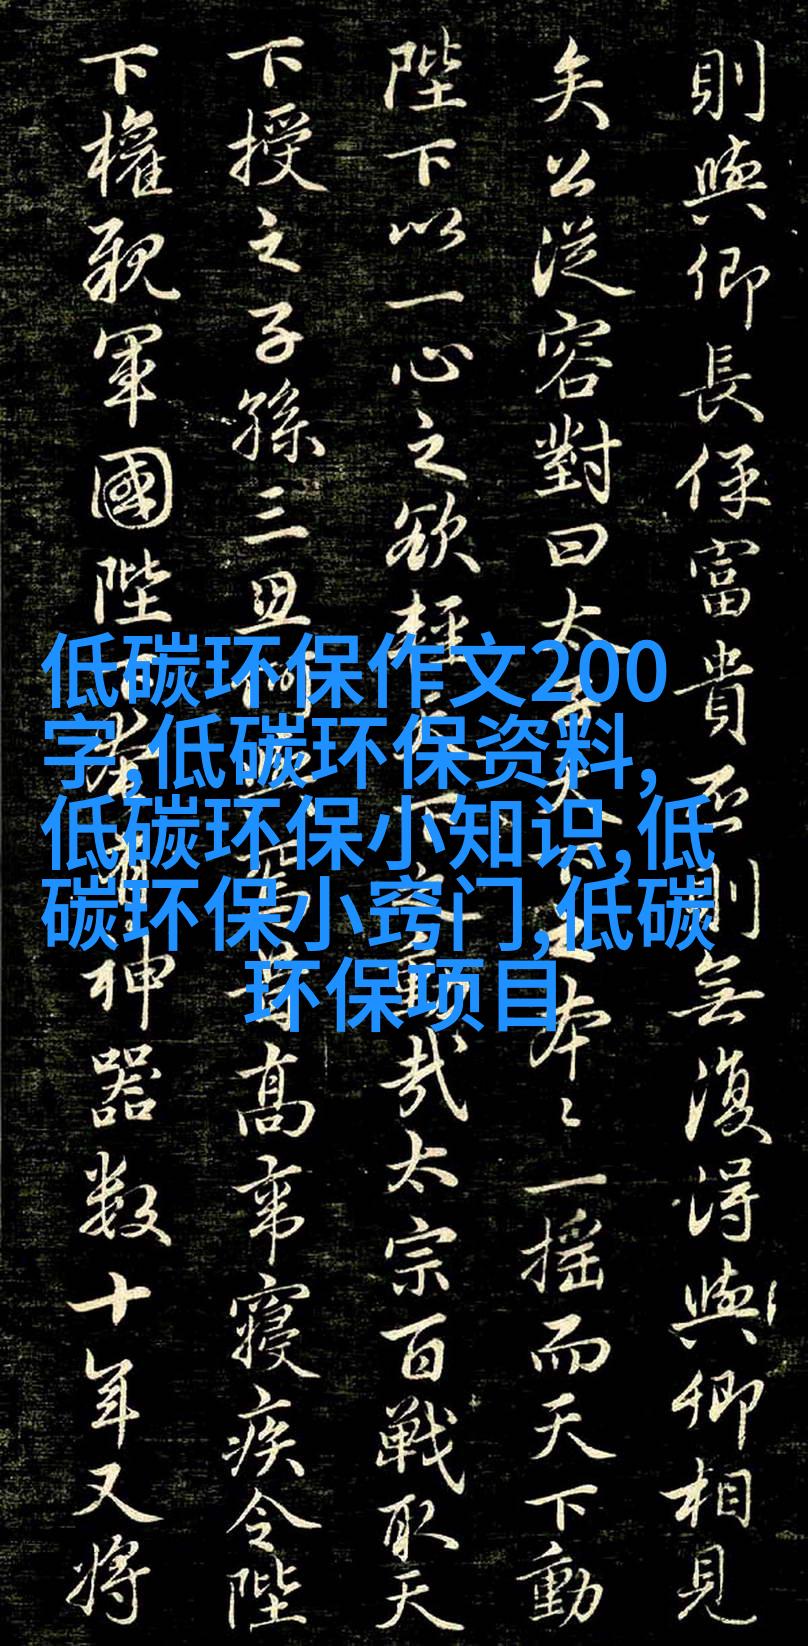 低碳环保作文200
字,低碳环保资料,
低碳环保小知识,低
碳环保小窍门,低碳
环保项目
則與卿長保富貴否則無復得與卿相見
矣公從容對曰太子天下之本〻一搖而天下動
陛下以一心之欲輕天下之動哉太宗百戰取天
下授之子孫三高帝寢疾令陛
下權親軍國陛下有神器数十年又將